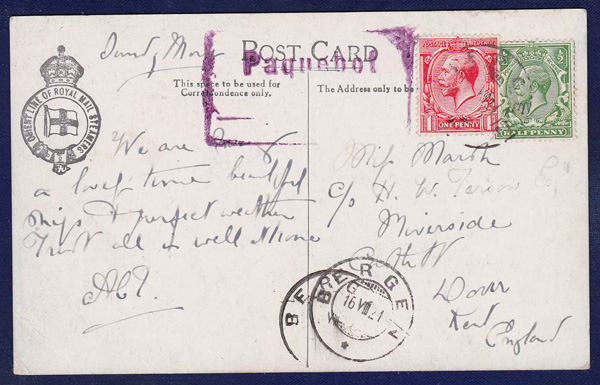 Sunday Morn
POST CARD
Paquebot
This space to be used for
Correspondence only.
The Address only to be
ORIENT LINE OF ROYAL MAIL STEAMERS
ONE PENNY
HALFPENNY
We are having
a lovely time beautiful
ship & perfect weather
Trust all is well at home
Miss Marsh
c/o H. W.
Riverside
Dover
Kent
England
BERGEN
16 VII 21
BE